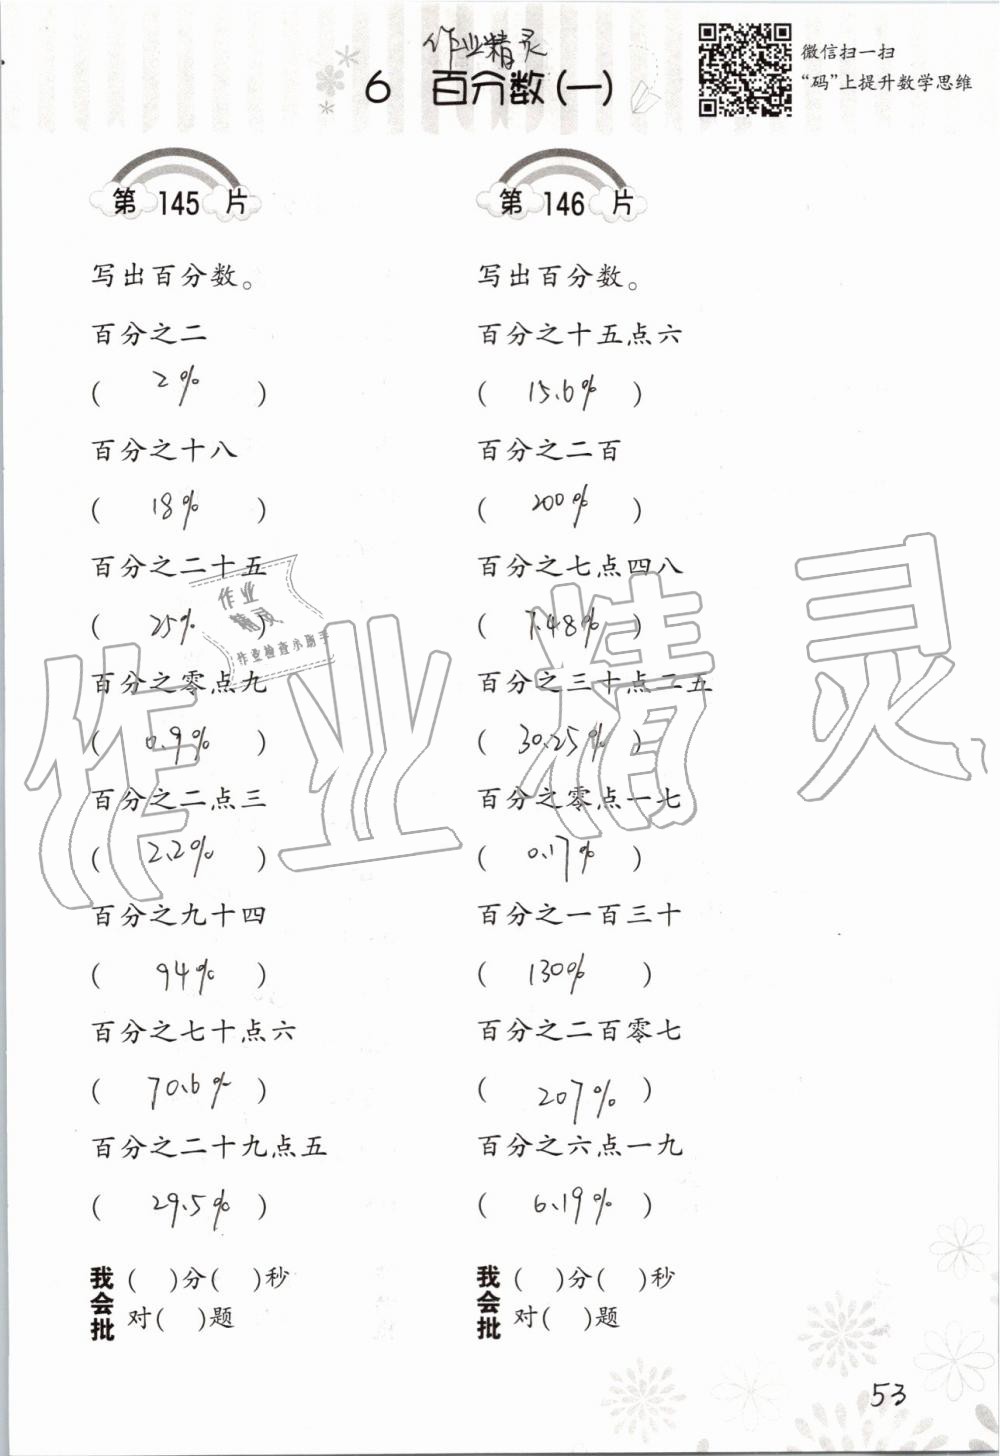 作业精灵
6 百分数(一)
微信扫一扫
“码”上提升数学思维
第 145 片
写出百分数。
百分之二
( 2% )
百分之十八
( 18% )
百分之二十五
( 25% )
百分之零点九
( 0.9% )
百分之二点三
( 2.2% )
百分之九十四
( 94% )
百分之七十点六
( 70.6% )
百分之二十九点五
( 29.5% )
我会批
( )分( )秒
对( )题
第 146 片
写出百分数。
百分之十五点六
( 15.6% )
百分之二百
( 200% )
百分之七点四八
( 7.48% )
百分之三十点二五
( 30.25% )
百分之零点一七
( 0.17% )
百分之一百三十
( 130% )
百分之二百零七
( 207% )
百分之六点一九
( 6.19% )
我会批
( )分( )秒
对( )题
作业
精灵
作业检查小助手
作业精灵
53